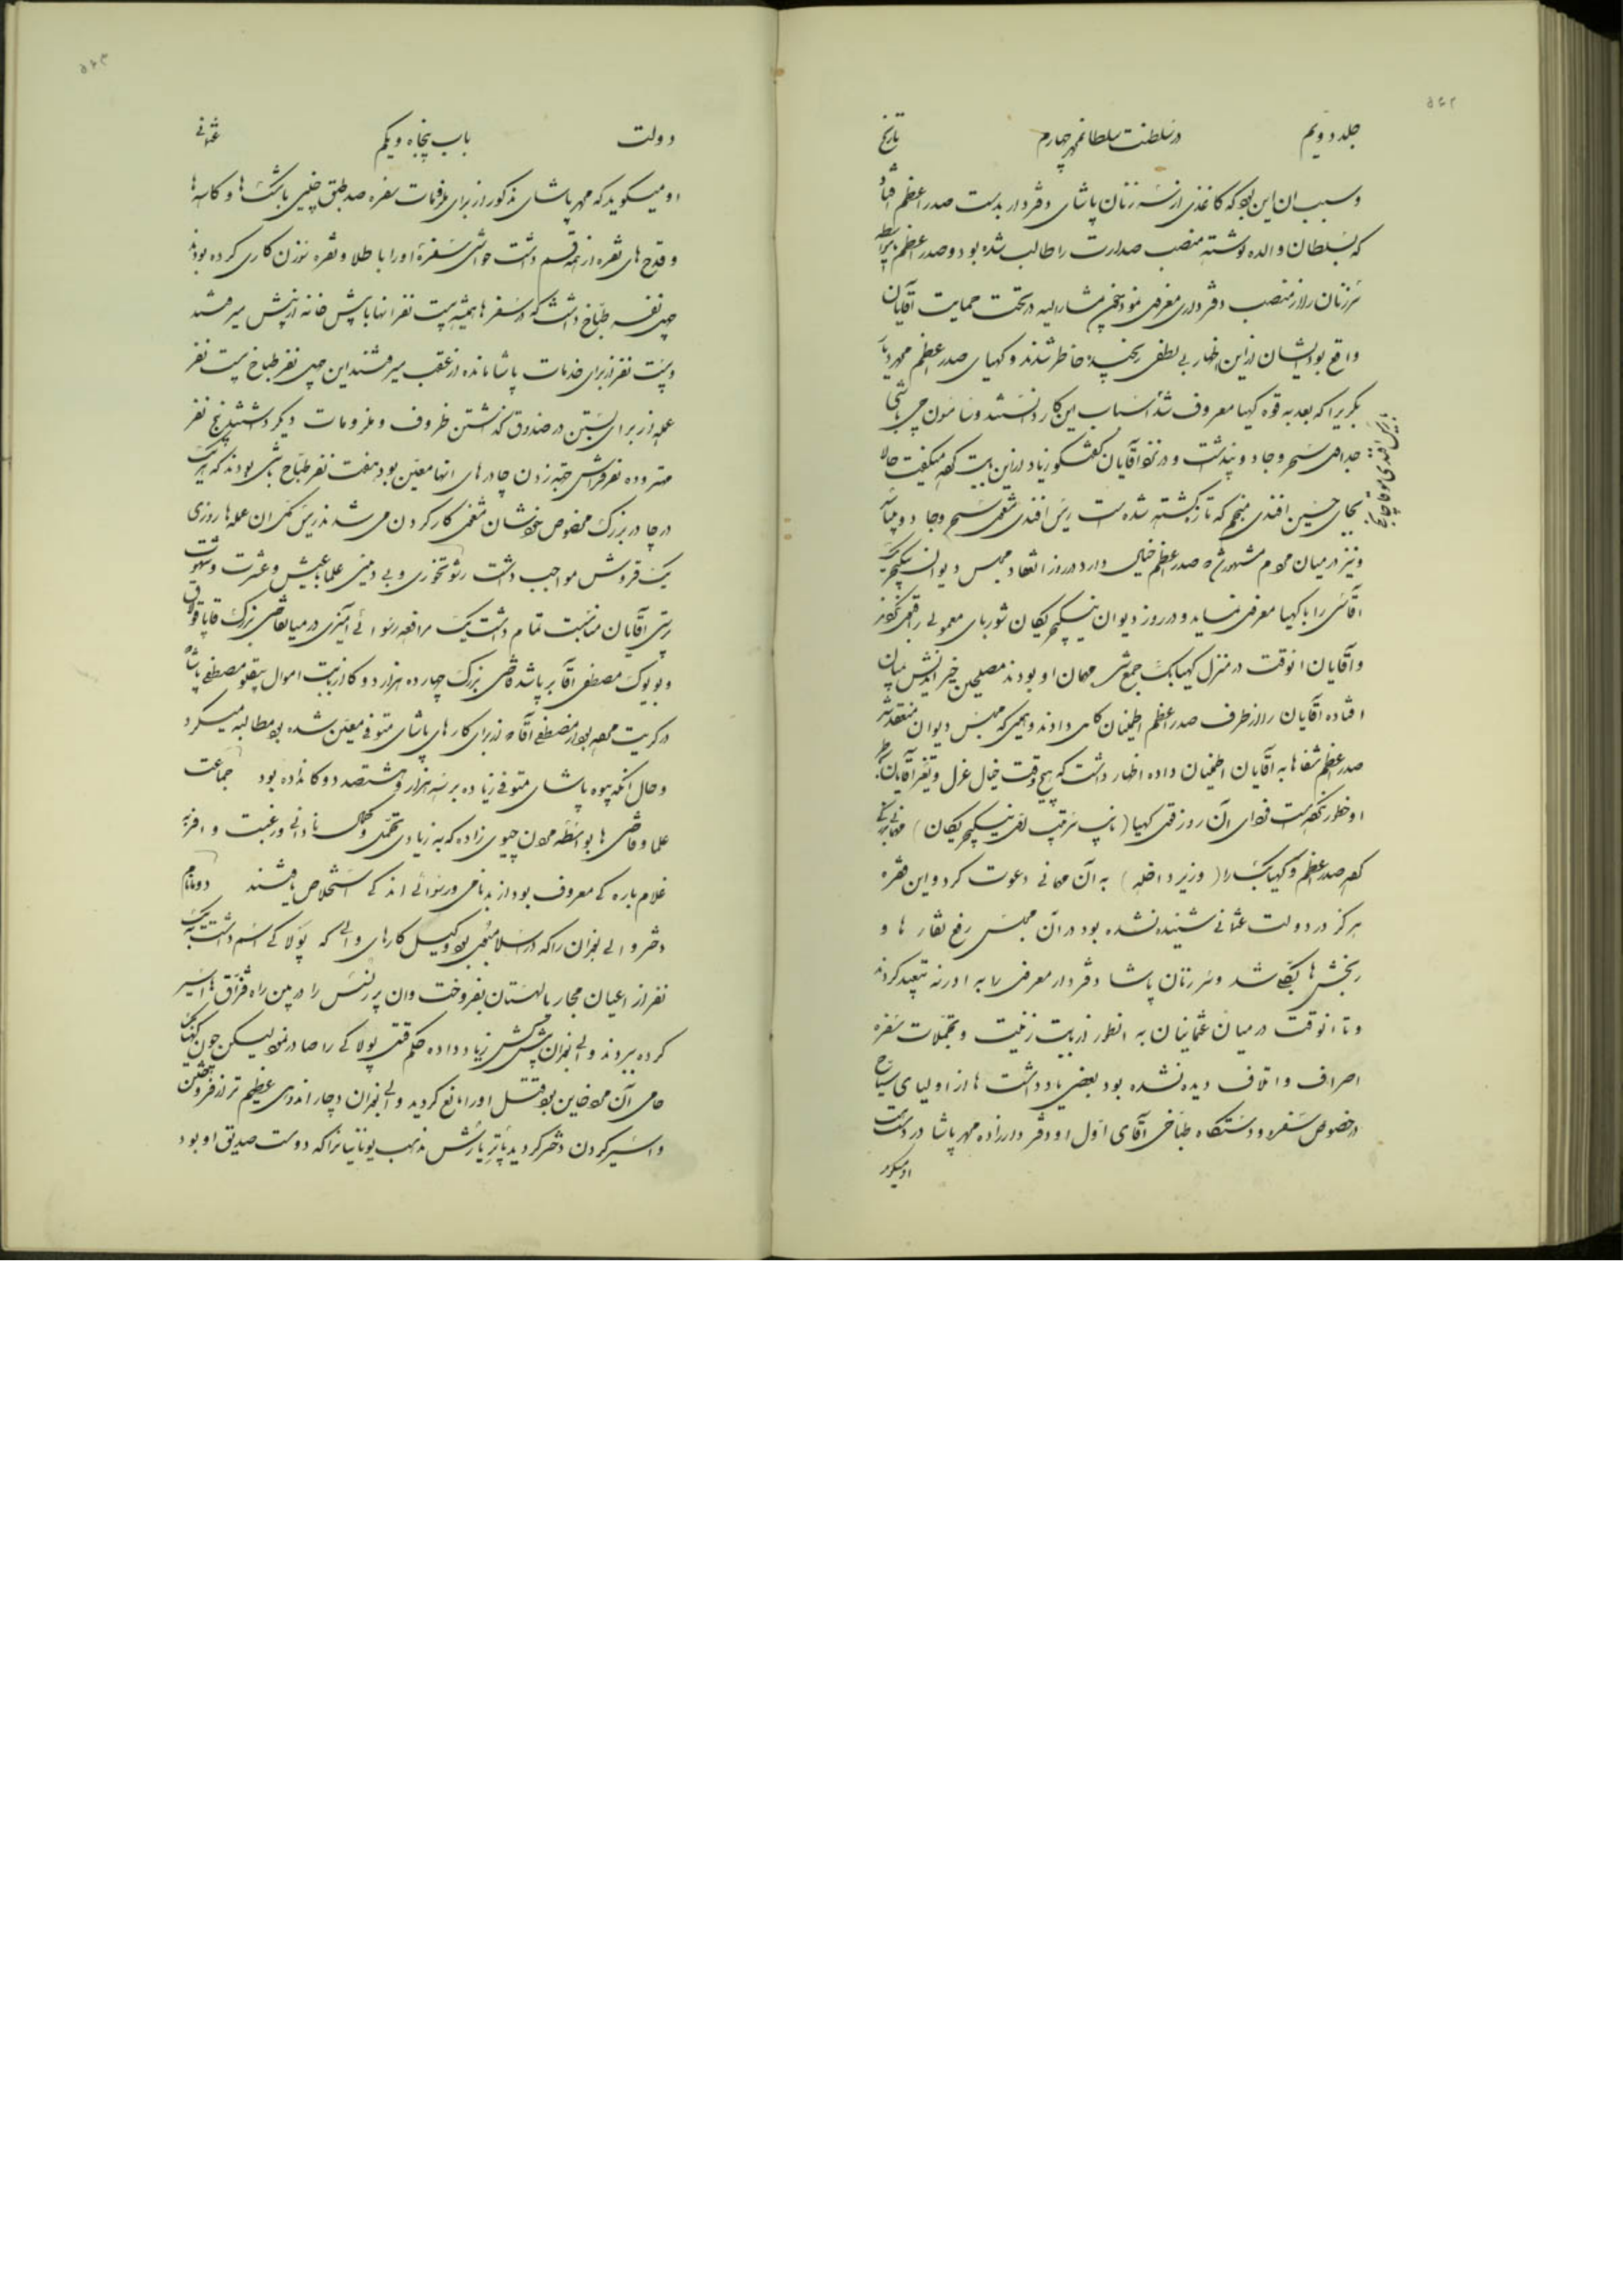 جلد دویم در سلطنت سلطان محمد چهارم تاریخ
وسبب ان این بود که کاغذی از سرزنان پاشای دفتردار بدست صدراعظم افتاد
که بسلطان والده نوشته منصب صدارت را طالب شده بود و صدراعظم
سرزنان را از منصب دفترداری معزول نمود چون مشارالیه در تحت حمایت آقایان
واقع بود ایشان از این اظهار بی لطفی رنجیده خاطر شدند و کهیای صدراعظم
بکر برا که بعد به قره کهیا معروف شد اسباب این کار دانستند و
جداهی سحر و جادو پنداشت و در نزد آقایان گفتگو زیاد در این بابت کرده میگفت حالا
بجای حسین افندی منجم که تازه کشته شده است ریس افندی شغل سحر و جادو
ونیز در میان مردم مشهور شد صدراعظم خیال دارد در روز انعقاد مجلس دیوان ینگیچریک
آقاسی را با کهیا معزول نماید و در روز دیوان ینگیچریکان شوربای معمولی را قبول نکنند
وآقایان انوقت در منزل کهیابک جمع شده مهمان او بودند مصلحین خیر اندیش بمیان
افتاده آقایان را از طرف صدراعظم اطمینان کامل دادند و همینکه مجلس دیوان منعقد شد
صدراعظم شفاها به آقایان اطمینان داده اظهار داشت که هیچ وقت خیال عزل و تغیر آقایان
او خطور نکرده است فردای آن روز قول کهیا (نایب سرتیپ اول ینگیچریکان) مهمانی بزرگی
کرده صدراعظم و کهیابک را (وزیر داخله) به آن مهمانی دعوت کرد و این فقره
هرگز در دولت عثمانی شنیده نشده بود در آن مجلس رفع نقار ها و
رنجش ها بکلی شد و سرزنان پاشا دفتردار معزول را به ادرنه تبعید کردند
و تا انوقت در میان عثمانیان به انطور از بابت زینت و تجملات سفره
اصراف و اتلاف دیده نشده بود بعضی یادداشت ها از اولیای سیاح
در خصوص سفره و دستگاه طباخی آقای اول او دفتردار زاده محمد پاشا در دست است
او میگوید
دولت باب پنجاه و یکم عثمانی
او میگوید که محمد پاشای مذکور از برای ملزومات سفره صد طبق چینی با بشقاب ها و کاسه ها
و قدح های نقره از همه قسم داشت حواشی سفرهٔ او را با طلا و نقره سوزن کاری کرده بودند
چهل نفر طباخ داشت که در سفر ها همیشه بیست نفر انها با پیش خانه از پیش میرفتند
و بیست نفر از برای خدمات پاشا مانده از عقب میرفتند این چهل نفر طباخ بیست نفر
عمله از برای بستن در صندوق گذاشتن ظروف و ملزومات دیگر داشتند پنج نفر
مهتر و ده نفر فراش جهة زدن چادر های انها معین بود هفت نفر طباخ باشی بودند که هر یک
در چادر بزرگ مخصوص بخودشان مشغول کار کردن می شدند ریس کل ان عمله ها روزی
یک قروش مواجب داشت رشوتخوری و بی دینی علما با عیش و عشرت و شهوت
رستی آقایان مناسبت تمام داشت یک مرافعه رسوائی آمیزی در میان قاضی بزرگ
و بویوک مصطفی آقا بر پا شد قاضی بزرگ چهارده هزار دوکا از بابت اموال بیقلو مصطفی پاشا
در کریت از مصطفی آقا که از برای کار های پاشای متوفی معین شده بود مطالبه میکرد
و حال آنکه بیوه پاشای متوفی زیاده بر سه هزار و هشتصد دوکا نداده بود جماعت
علما و قاضی ها بواسطه چیوی زاده که به زیادی تجمل و کمال نادانی و رغبت وافر به
غلام باره گی معروف بود از بدنامی و رسوائی اندکی استخلاص یافتند
دختر والی بغدان را که در اسلامبول بود وکیل کارهای والی که پولاکی اسم داشت به یک
نفر از اعیان مجار یا لهستان بفروخت وان پرنسس را در بین راه قزاق ها اسیر
کرده بردند والی بغدان پیش کش زیاد داده حکم قتل پولاکی را صادر نمود لیکن چون
حامی آن مرد خاین بود قتل او را مانع گردید والی بغدان دچار اندوهی عظیم تر از فروختن
و اسیر کردن دختر گردید پاتریارش مذهب یونانیانرا که دوست صدیق او بود